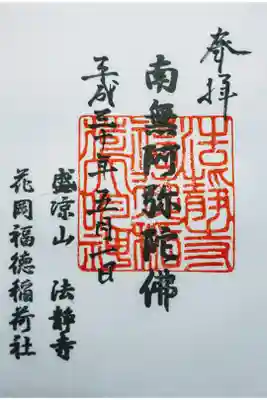 奉拝
南無阿弥陀佛
平成三十年五月一日
盛凉山 法静寺
花岡福徳稲荷社